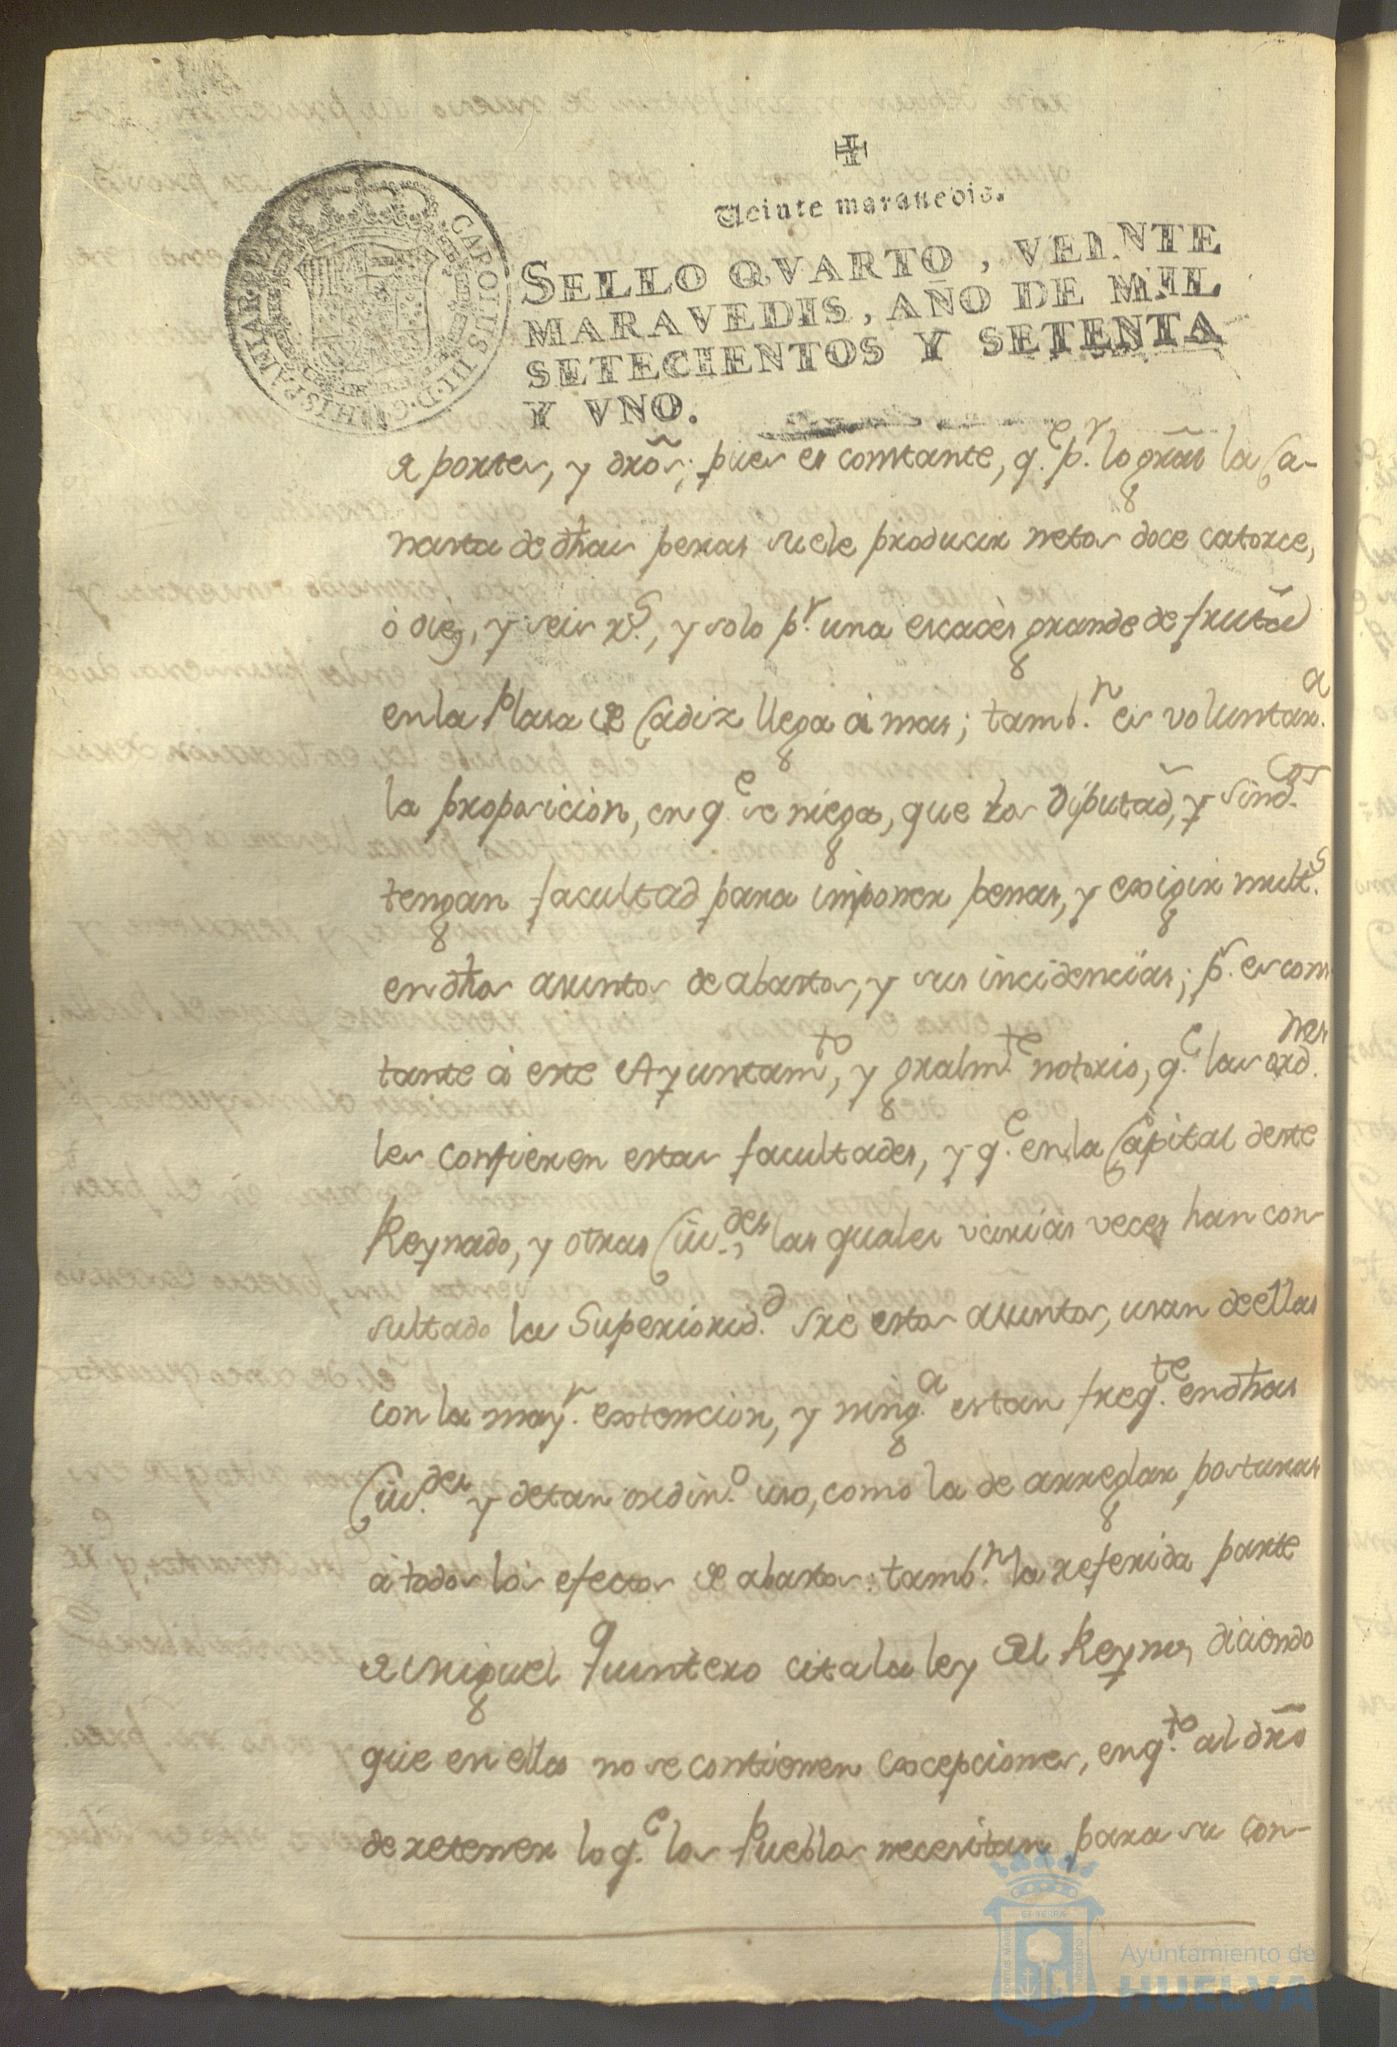 ✠
Veinte marauedis.
SELLO QVARTO, VEINTE
MARAVEDIS, AÑO DE MIL
SETECIENTOS Y SETENTA
Y VNO.
CAROLUS III D G HISPANIAR
portes, y dr̃os; pues es constante, q.e p.r lo gr̃al la Ca-
nasta de dh̃as peras suele producir netos doce catorce,
ò diez, y seis r.s, y solo p.r una escaces grande de fruta
en la Plasa de Cadiz llega à mas; tamb.n es voluntar.a
la proposicion, en q.e se niega, que los Diputad, y sind.cos
tengan facultad para imponer penas, y exigir mult.s
en dh̃os asuntos de abastos, y sus incidencias; p.r es cons
tante à este Ayuntam.to, y gralm.te notorio, q.e las ord.nes
les confieren estas facultades, y q.e en la Capital deste
Reynado, y otras Ciu.des, las quales varias veces han con-
sultado la Superiorid.d sre estos asuntos, usan de ellas
con la may.r extencion, y ning.a es tan freq.te en dh̃as
Ciu.des y de tan ordin.o uso, como la de arreglar posturas
à todos los efectos de abastos: tamb.n la referida parte
Miguel Quintero cita la ley del Reyno, diciendo
que en ella no se contienen excepciones, en q.to al dr̃o
de retener lo q.e los Pueblos necesitan para su con-
Ayuntamiento de
HUELVA